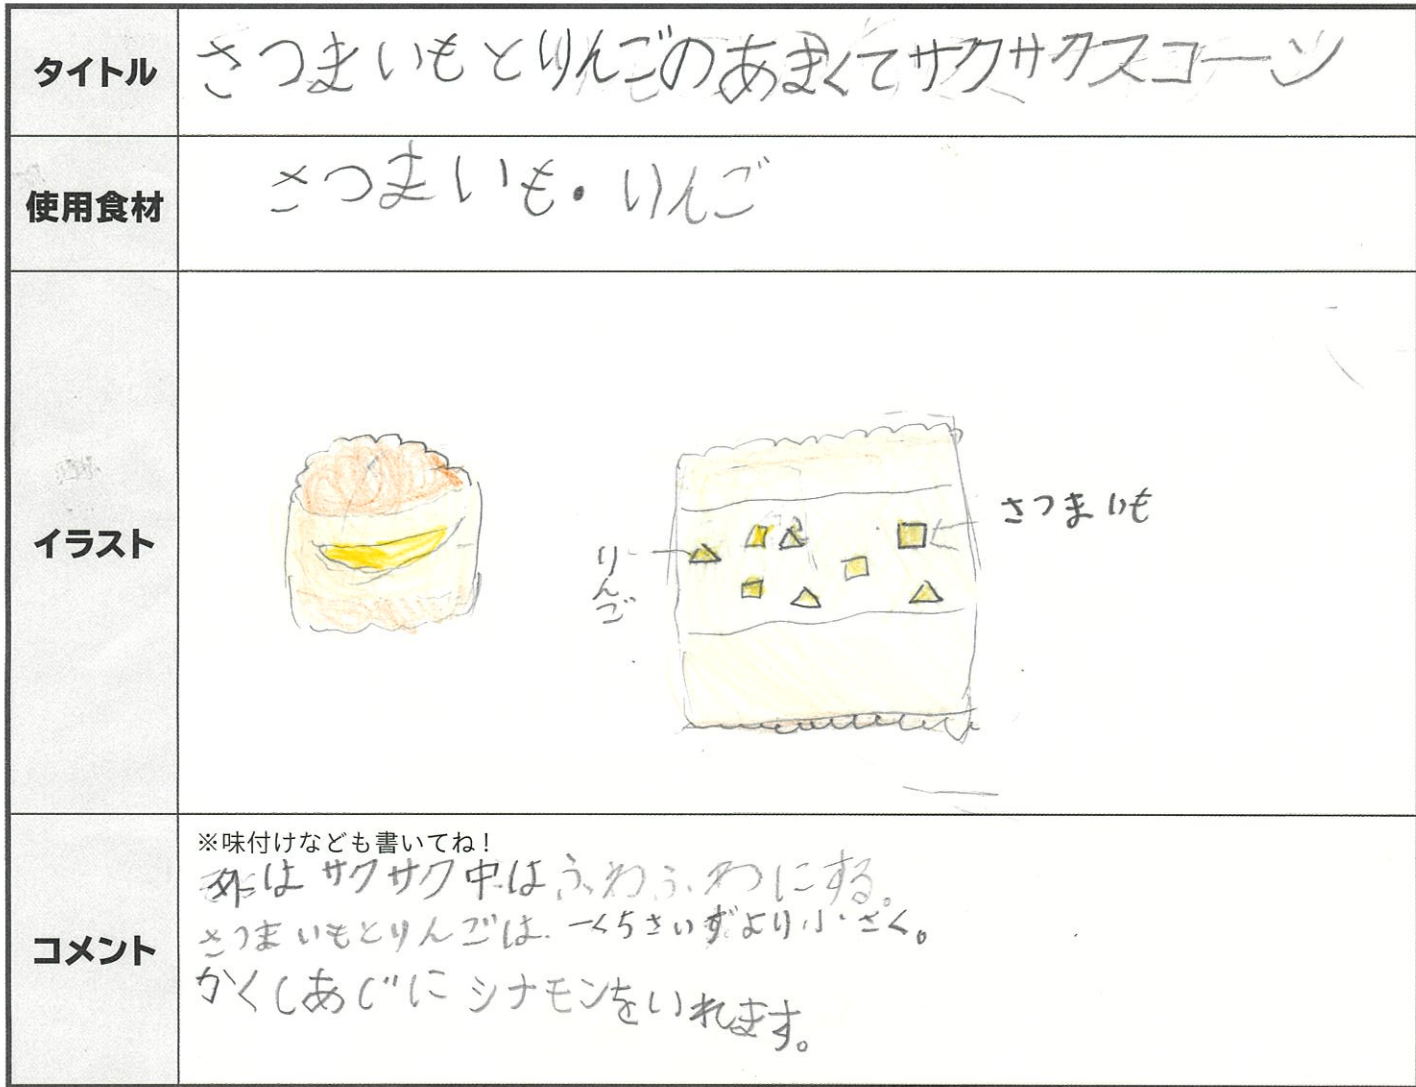 タイトル
さつまいもとりんごのあまくてサクサクスコーン
使用食材
さつまいも・りんご
イラスト
りんご
さつまいも
コメント
※味付けなども書いてね!
外はサクサク中はふわふわにする。
さつまいもとりんごは一くちさいずより小さく。
かくしあじにシナモンをいれます。